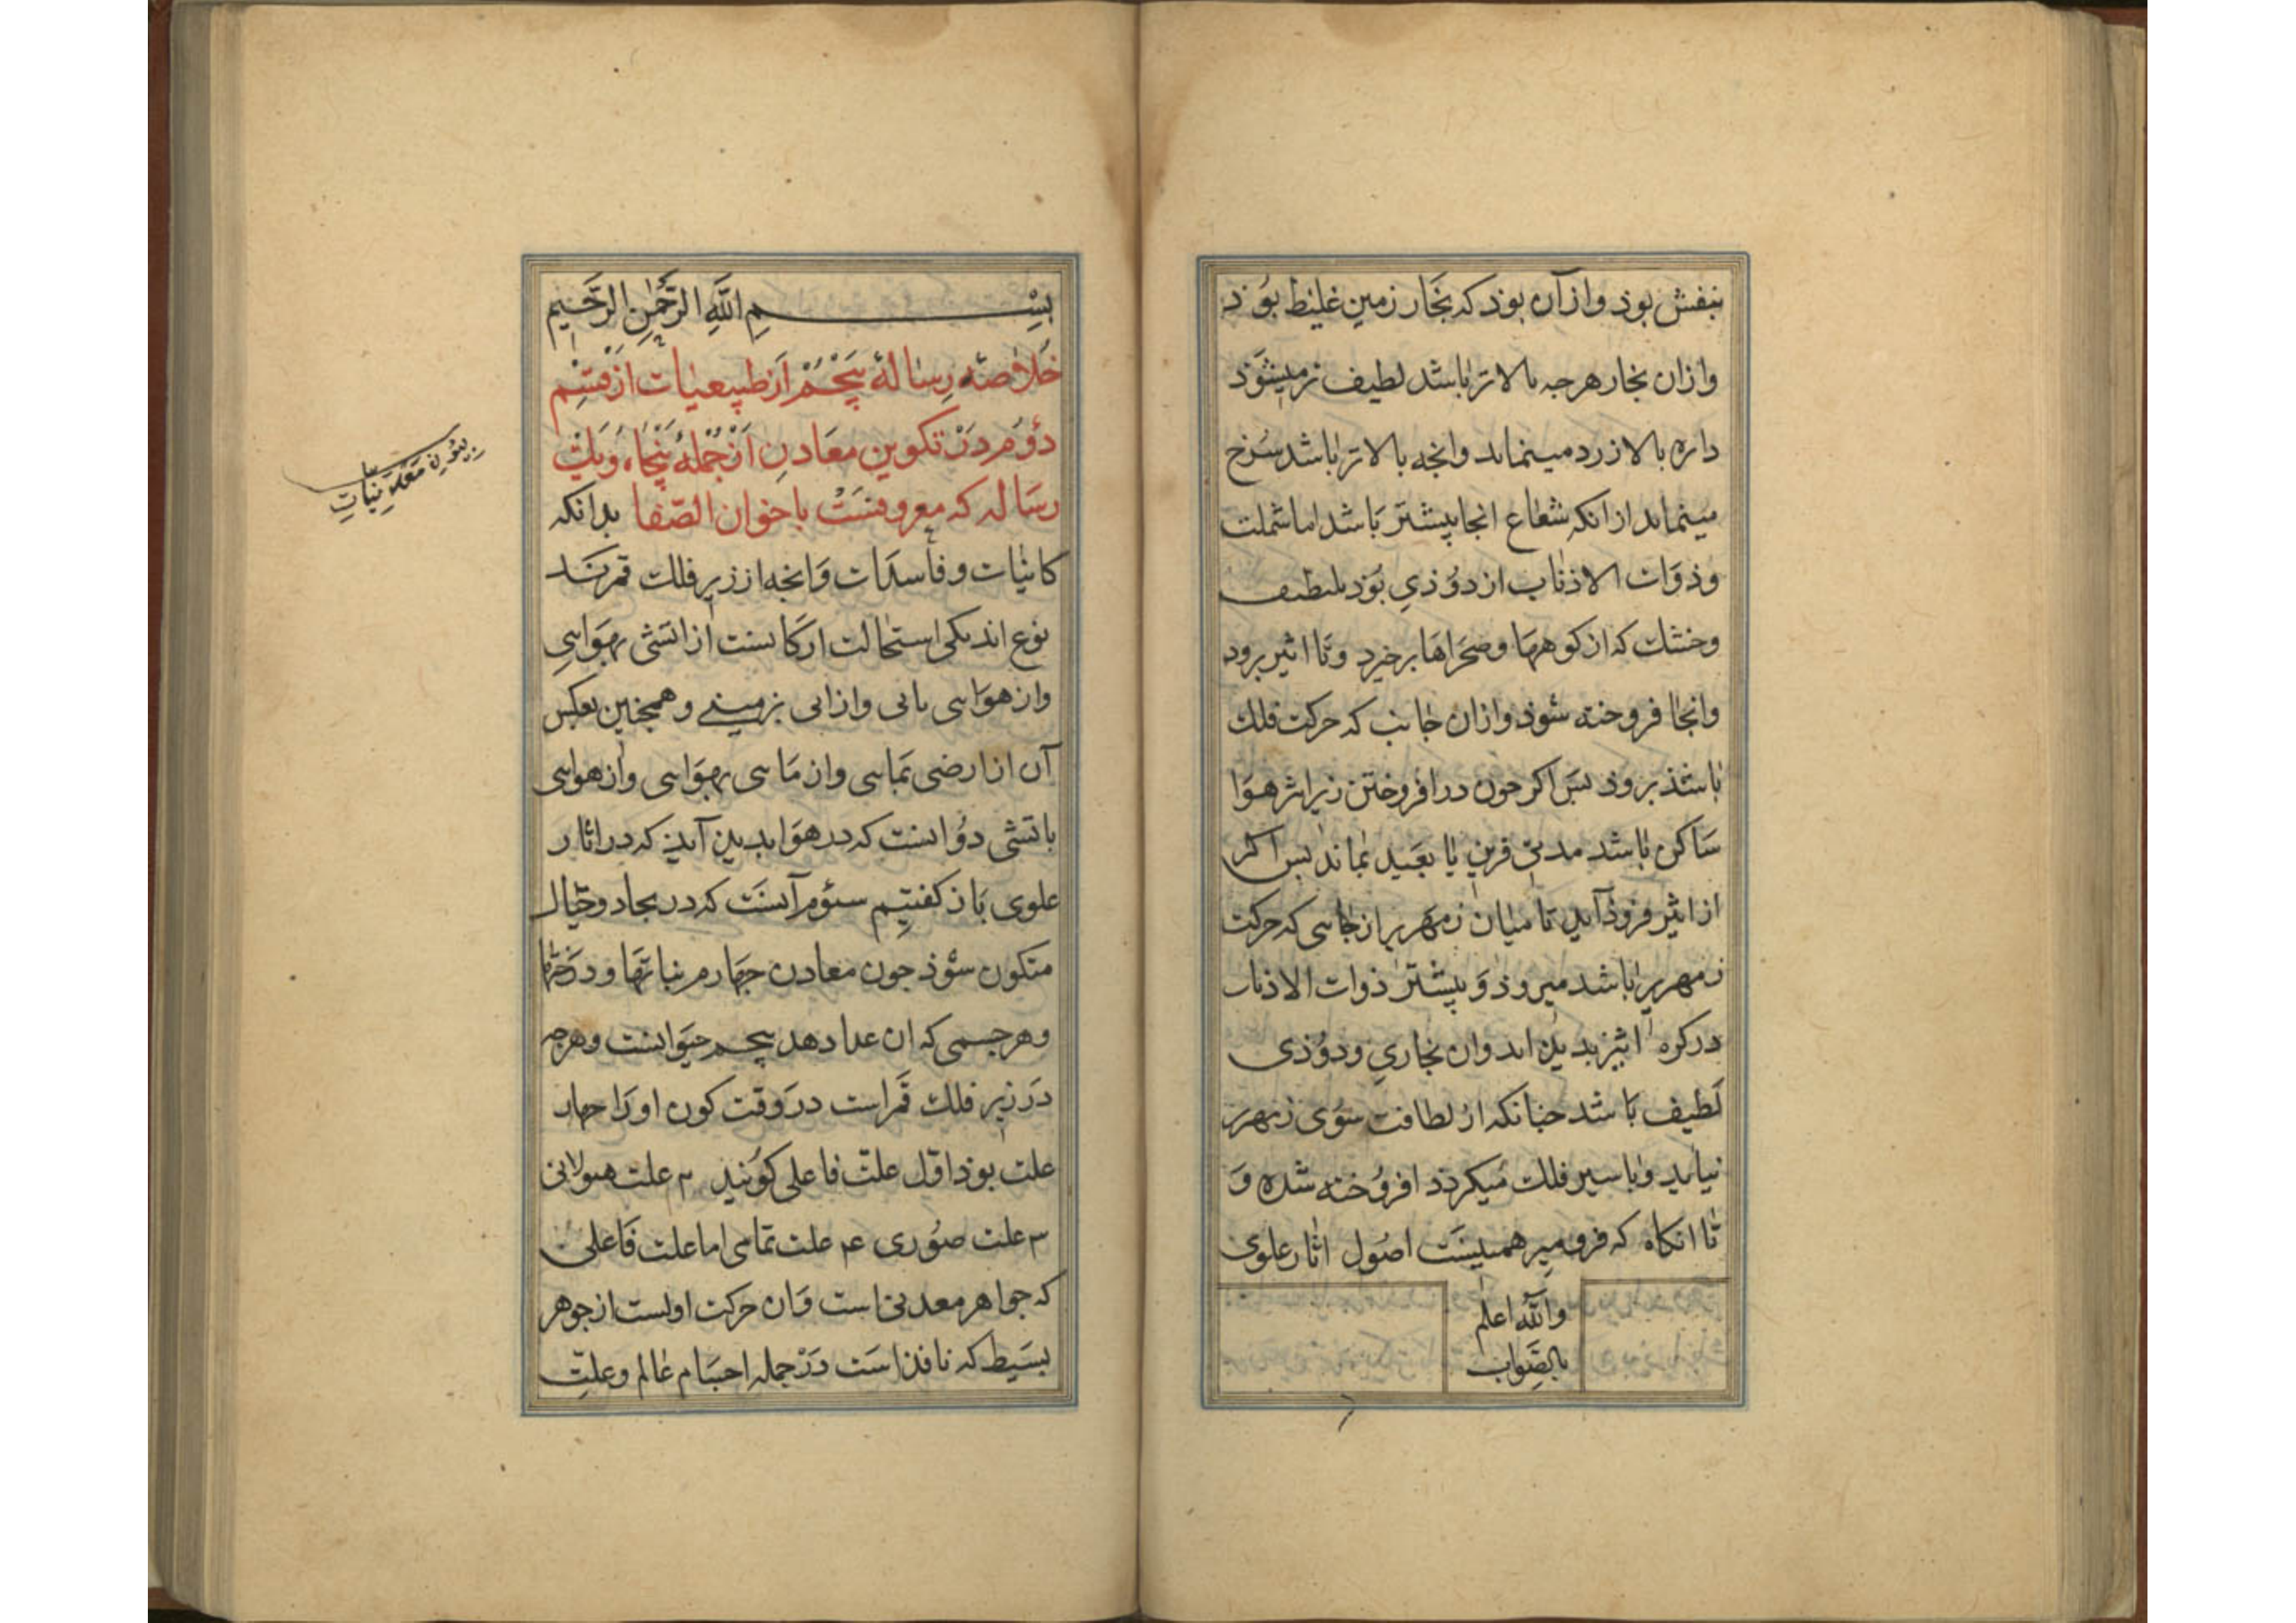 بنفش بوذ و از آن بوذ که بخار زمین غلیظ بوذ
و ازان بخار هرجه بالاتر باشد لطیف تر میشوذ
داره بالا زرد مینماید و انجه بالاتر باشد سرخ
مینماید از انکه شعاع انجا بیشتر باشد اما شملت
و ذوات الاذناب از دوذی بوذ بلطیف
و خشك که از کوهها و صحراها برخیزد و تا اثیر برود
و انجا فروخته شوذ و ازان جانب که حرکت فلك
باشذ بروذ بس اکر جون در افروختن زیر اثر هوا
ساکن باشد مدتی قریب یا بعید بماند بس اکر
از اثیر فروذ آید تا میان زمهریر از جایی که حرکت
زمهریر باشد میروذ و بیشتر ذوات الاذناب
در کره اثیر بدید اید و ان بخاری و دوذی
لطیف باشد جنانکه از لطافت سوی زمهریر
نیاید و با سیر فلك میکردد افروخته شده و
تا انکاه که فرو میرد همینست اصول اثار علوی
والله اعلم
بالصواب
بسم الله الرحمن الرحیم
خلاصه رسالهٔ پنجم از طبیعیات از قسم
دوم در تکوین معادن از جملهٔ پنجاه و یك
رساله که معروفست باخوان الصفا بدانکه
کاینات و فاسدات و انجه از زیر فلك قمرند
نوع اند یکی استحالت ارکانست از اتشی بهوایی
و از هوایی بابی و از ابی بزمینی و همجنین بعکس
آن از ارضی بمایی و از مایی بهوایی و از هوایی
باتشی دو انست که در هوا بدید آید که در اثار
علوی باز کفتیم سوم آنست که در بحار و جبال
متکون شوذ جون معادن جهارم نباتها و درختها
و هر جسمی که ان غذا دهد پنجم حیوانست و هرجه
در زیر فلك قمر است در وقت کون او را جهار
علت بوذ اول علت فاعلی کویند ۲ علت هیولانی
۳ علت صوری ۴ علت تمامی اما علت فاعلی
که جواهر معدنی است و ان حرکت اولست از جوهر
بسیط که نافذ است در جمله اجسام عالم و علت